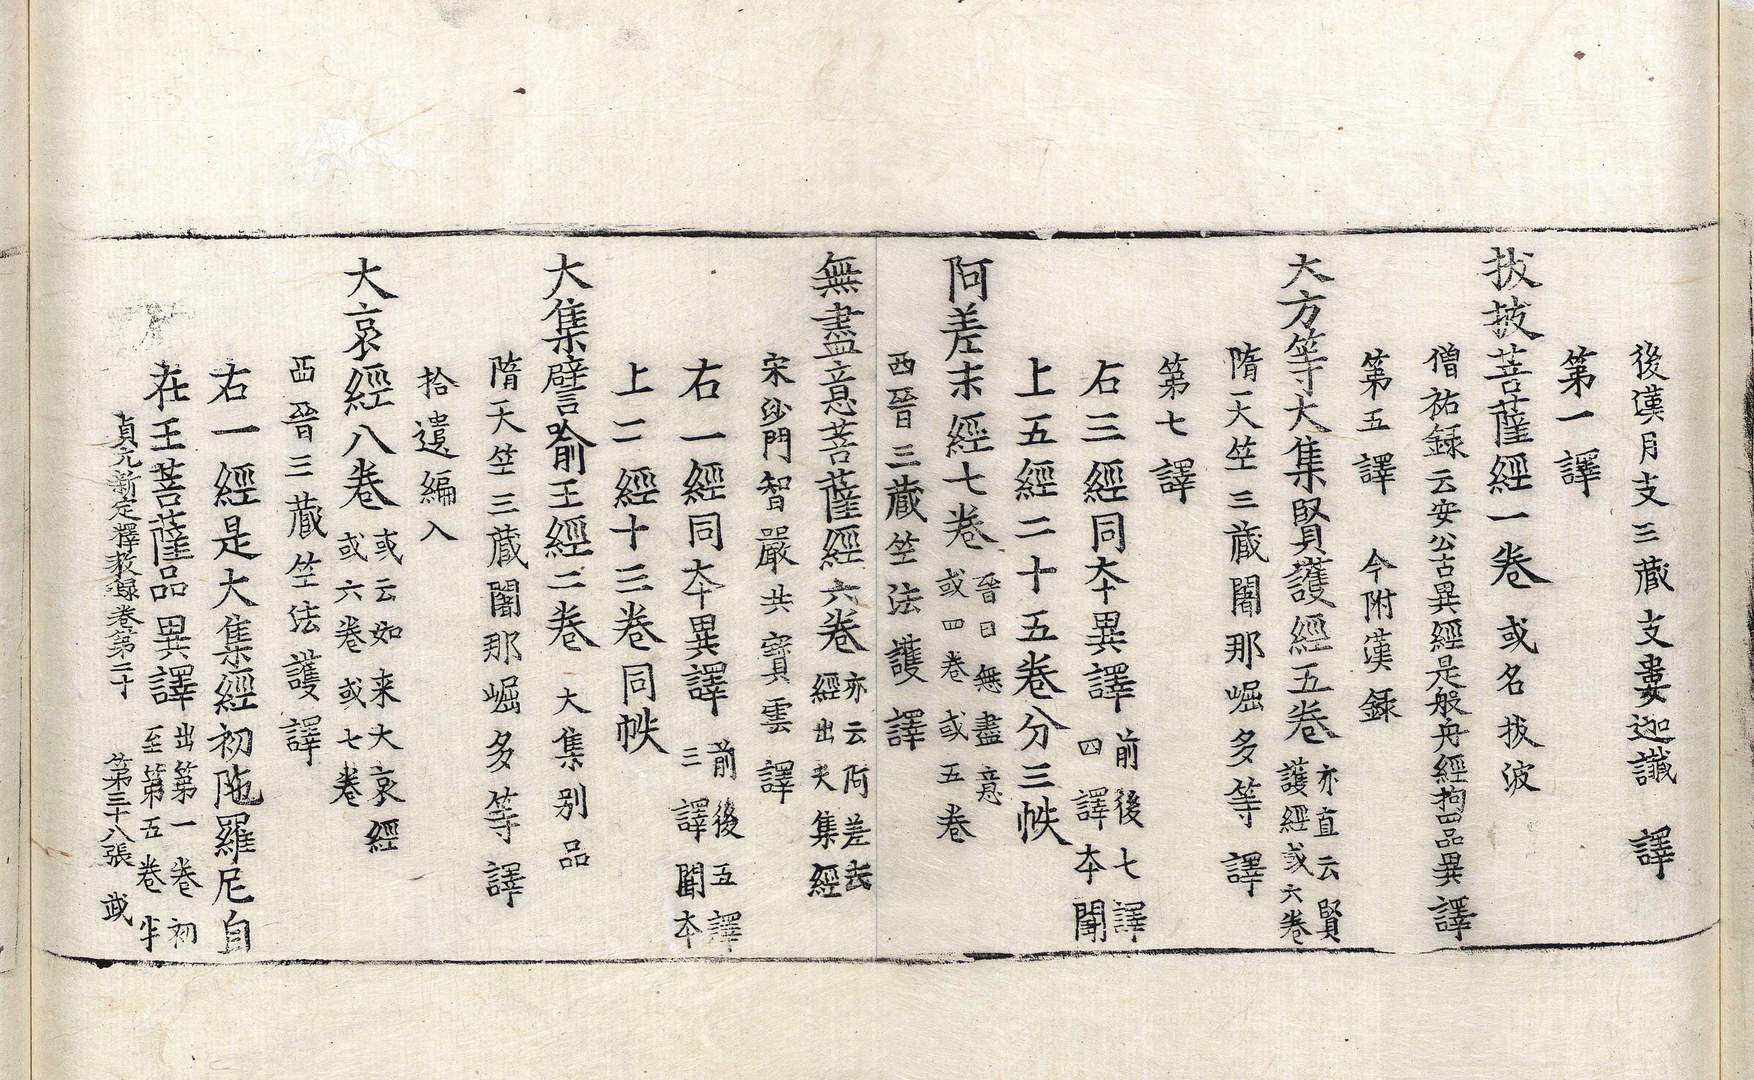 後漢月支三藏支婁迦讖譯
第一譯
拔披菩薩經一卷 或名拔波
僧祐録云安公古異經是般舟經拘四品異譯
第五譯 今附漢録
大方等大集賢護經五卷 亦直云賢
護經或六卷
隋天竺三藏闍那崛多等譯
第七譯
右三經同夲異譯 前後七譯
四譯夲闕
上五經二十五卷分三帙
阿差末經七卷 晉曰無盡意
或四卷或五卷
西晉三藏竺法護譯
無盡意菩薩經六卷 亦云阿差末
經出大集經
宋沙門智嚴共寶雲譯
右一經同夲異譯 前後五譯
三譯闕夲
上二經十三卷同帙
大集譬喻王經二卷 大集别品
隋天竺三藏闍那崛多等譯
拾遺編入
大哀經八卷 或云如来大哀經
或六卷或七卷
西晉三藏竺法護譯
右一經是大集經初陁羅尼自
在王菩薩品異譯 出第一卷初
至第五卷半
貞元新定釋教録卷第二十 第三十八張